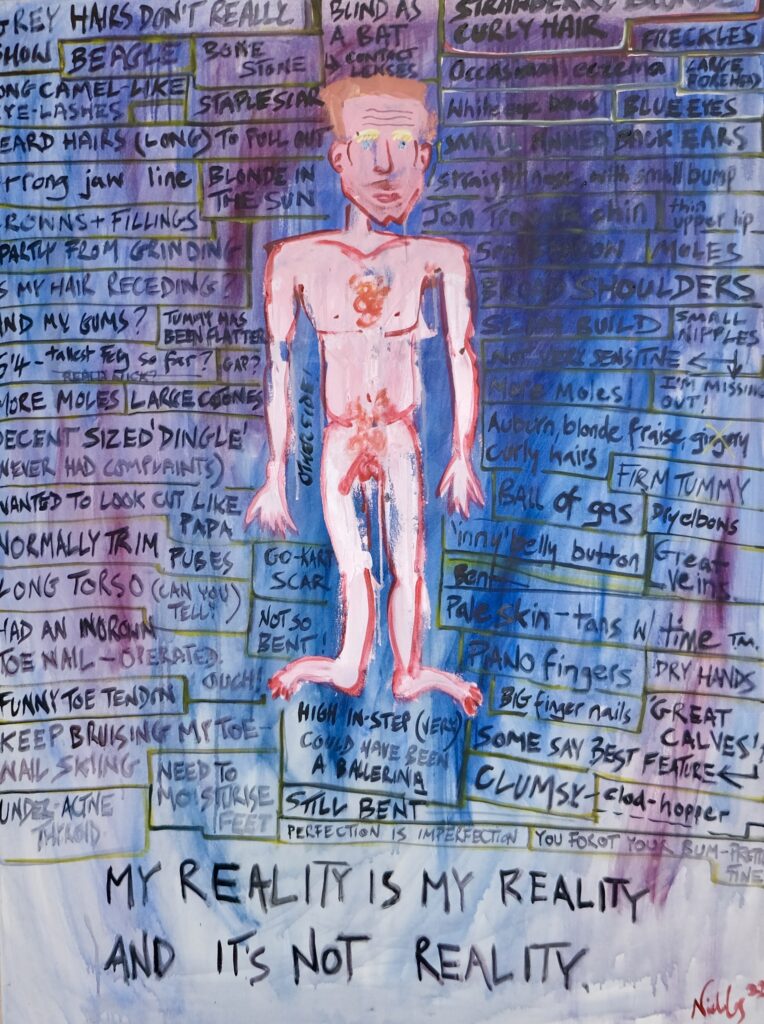 GREY HAIRS DON'T REALLY
SHOW
BEAGLE
BONE
STONE
BLIND AS
A BAT
CONTACT
LENSES
STRAWBERRY BLONDE
CURLY HAIR
FRECKLES
LONG CAMEL-LIKE
EYE-LASHES
STAPLE SCAR
Occasional eczema
LARGE
FOREHEAD
White eye brows
BLUE EYES
BEARD HAIRS (LONG) TO PULL OUT
SMALL PINNED BACK EARS
Strong jaw line
BLONDE IN
THE SUN
straightish nose with small bump
CROWNS + FILLINGS
PARTLY FROM GRINDING
Jon chin
thin
upper lip
MOLES
IS MY HAIR RECEDING?
BROAD SHOULDERS
AND MY GUMS?
TUMMY HAS
BEEN FLATTER
SLIM BUILD
SMALL
NIPPLES
6'4 - tallest so far?
GAP?
NOT VERY SENSITIVE
I'M MISSING
OUT!
MORE MOLES
LARGE
More Moles!
OTHER SIDE
DECENT SIZED 'DINGLE'
(NEVER HAD COMPLAINTS)
Auburn, blonde fraise, gingery
curly hairs
FIRM TUMMY
WANTED TO LOOK CUT LIKE
PAPA
BALL OF gas
Dry elbows
NORMALLY TRIM
PUBES
GO-KART
SCAR
'inny' belly button
Great
veins
Bent
LONG TORSO (CAN YOU
TELL?)
NOT SO
BENT!
Pale skin - tans w/ time TM.
HAD AN INGROWN
TOE NAIL - OPERATED.
OUCH!
PIANO fingers
DRY HANDS
FUNNY TOE TENDON
HIGH IN-STEP (VERY)
COULD HAVE BEEN
A BALLERINA
BIG finger nails
'GREAT
CALVES'
KEEP BRUISING MY TOE-
NAIL SKIING
SOME SAY BEST FEATURE
NEED TO
MOISTURISE
FEET
STILL BENT
CLUMSY -
clod-hopper
UNDER-ACTIVE
THYROID
PERFECTION IS IMPERFECTION
YOU FORGOT YOUR BUM - PRETTY
FINE
MY REALITY IS MY REALITY
AND IT'S NOT REALITY.